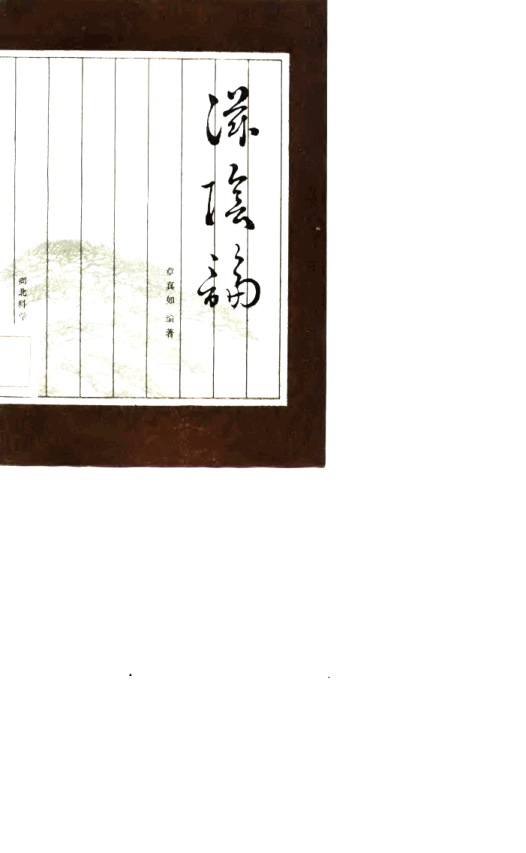 滋陰論
章真如 编著
湖北科学